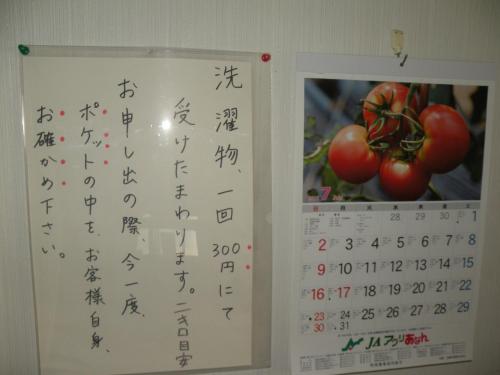 洗濯物、一回300円にて
受けたまわります。二キロ目安
お申し出の際、今一度、
ポケットの中を、お客様自身、
お確かめ下さい。
7
日 月 火 水 木 金 土
28 29 30 1
2 3 4 5 6 7 8
9 10 11 12 13 14 15
16 17 18 19 20 21 22
23 24 25 26 27 28 29
30 31
JAアプリあなん